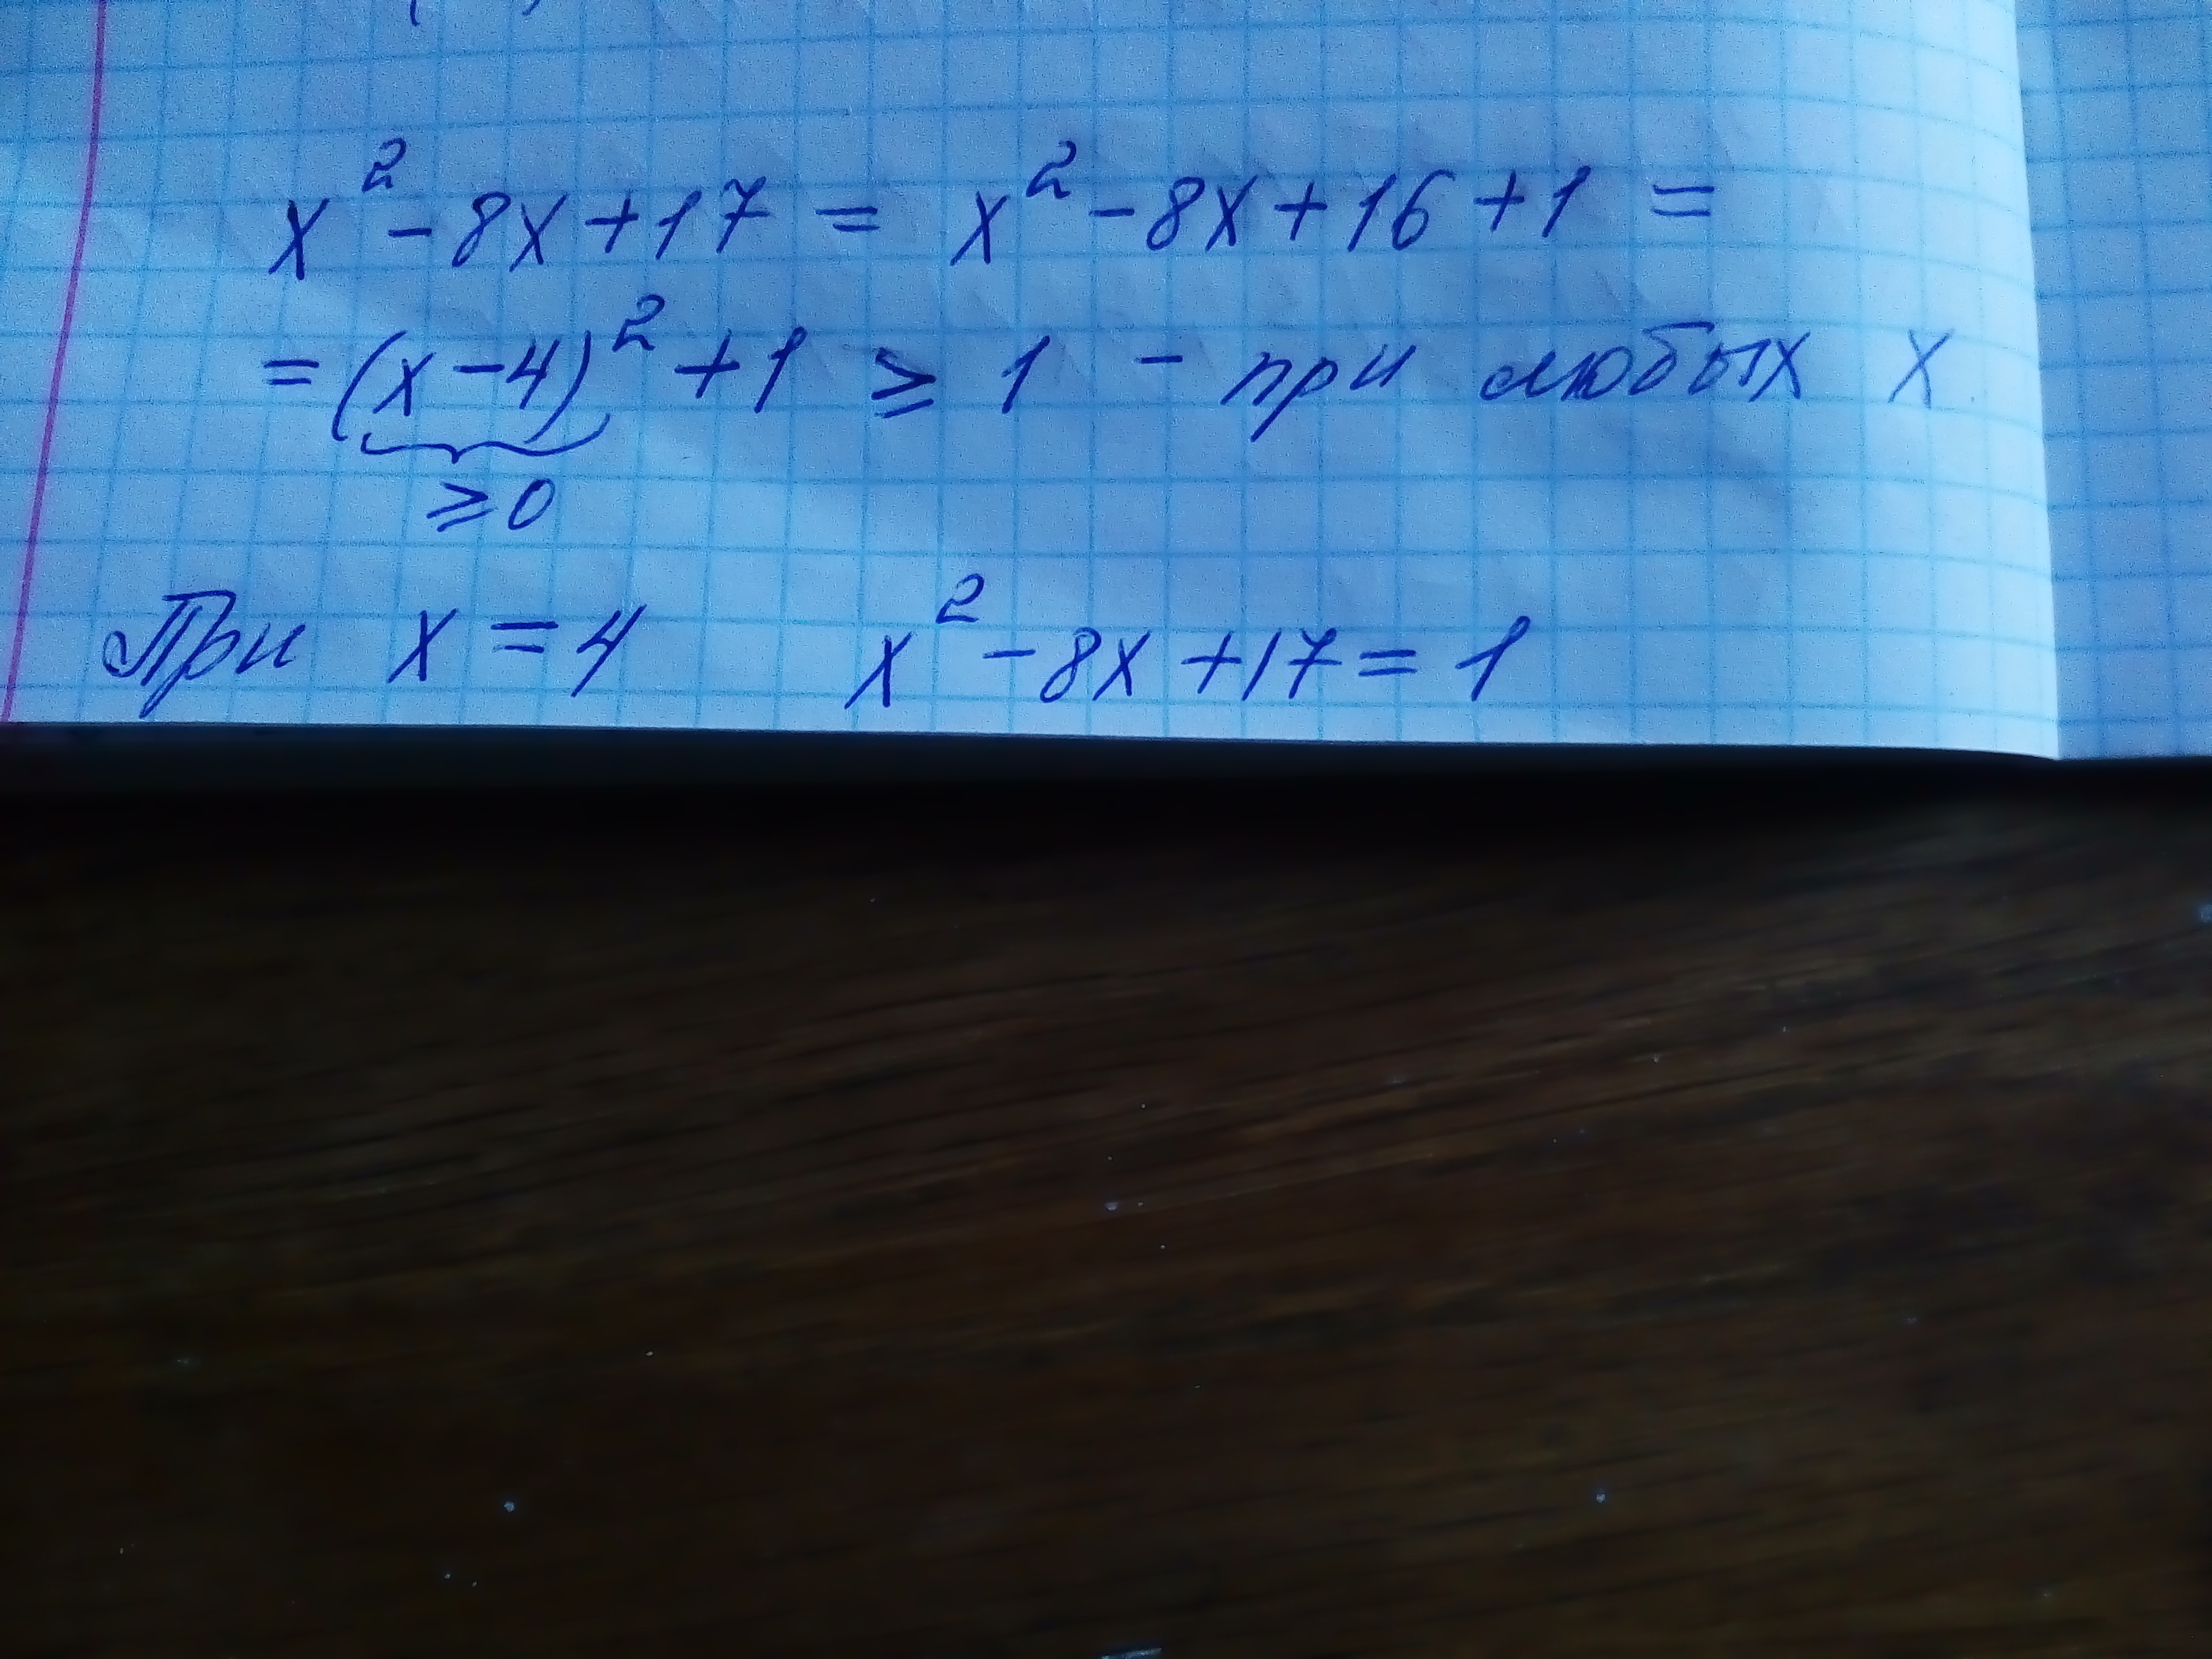 x² - 8x + 17 = x² - 8x + 16 + 1 =
= (x - 4)² + 1 ⩾ 1 - при любых x
⩾ 0
При x = 4 x² - 8x + 17 = 1